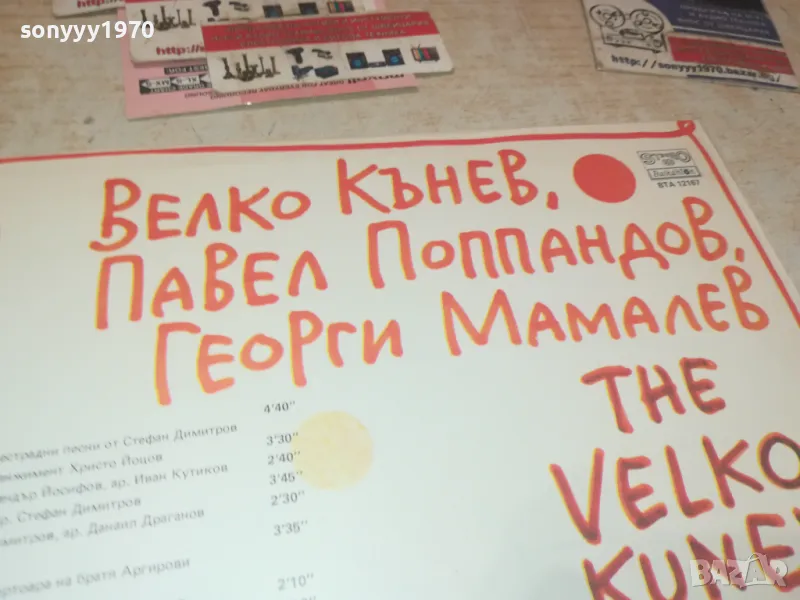 sonyyy1970
http://sonyyy1970.bazar.bg/
СТЕРЕО
Балкантон
ВТА 12167
ВЕЛКО КЪНЕВ,
ПАВЕЛ ПОППАНДОВ,
ГЕОРГИ МАМАЛЕВ
THE
VELKO
KUNEV
4'40"
естрадни песни от Стефан Димитров
3'30"
анжимент Христо Йоцов
2'40"
ендър Йосифов, ар. Иван Кутиков
3'45"
р. Стефан Димитров
2'30"
митров, ар. Данаил Драганов
3'35"
ртоара на братя Аргирови
2'10"
BAZAR